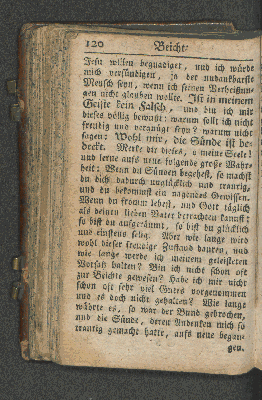 120 Beicht-
Jesu willen begnadiget, und ich würde
mich versündigen, ja der undankbarste
Mensch seyn, wenn ich seinen Verheissun-
gen nicht glauben wollte. Ist in meinem
Geiste kein Falsch, und bin ich mir
dieses völlig bewußt: warum sollt ich nicht
freudig und vergnügt seyn? warum nicht
sagen: Wohl mir, die Sünde ist be-
deckt. Merke dir dieses, o meine Seele!
und lerne aufs neue folgende große Wahr-
heit: Wenn du Sünden begehest, so machst
du dich dadurch unglücklich und traurig,
und du bekommst ein nagendes Gewissen.
Wenn du fromm lebest, und Gott täglich
als deinen lieben Vater betrachten kannst:
so bist du aufgeräumt, so bist du glücklich
und einstens selig. Aber wie lange wird
wohl dieser freudige Zustand dauren, und
wie lange werde ich meinem geleisteten
Vorsatz halten? Bin ich nicht schon oft
zur Beichte gewesen? Habe ich mir nicht
schon oft sehr viel Gutes vorgenommen
und es doch nicht gehalten? Wie lange
währte es, so war der Bund gebrochen,
und die Sünde, deren Andenken mich so
traurig gemacht hatte, aufs neue began-
gen.